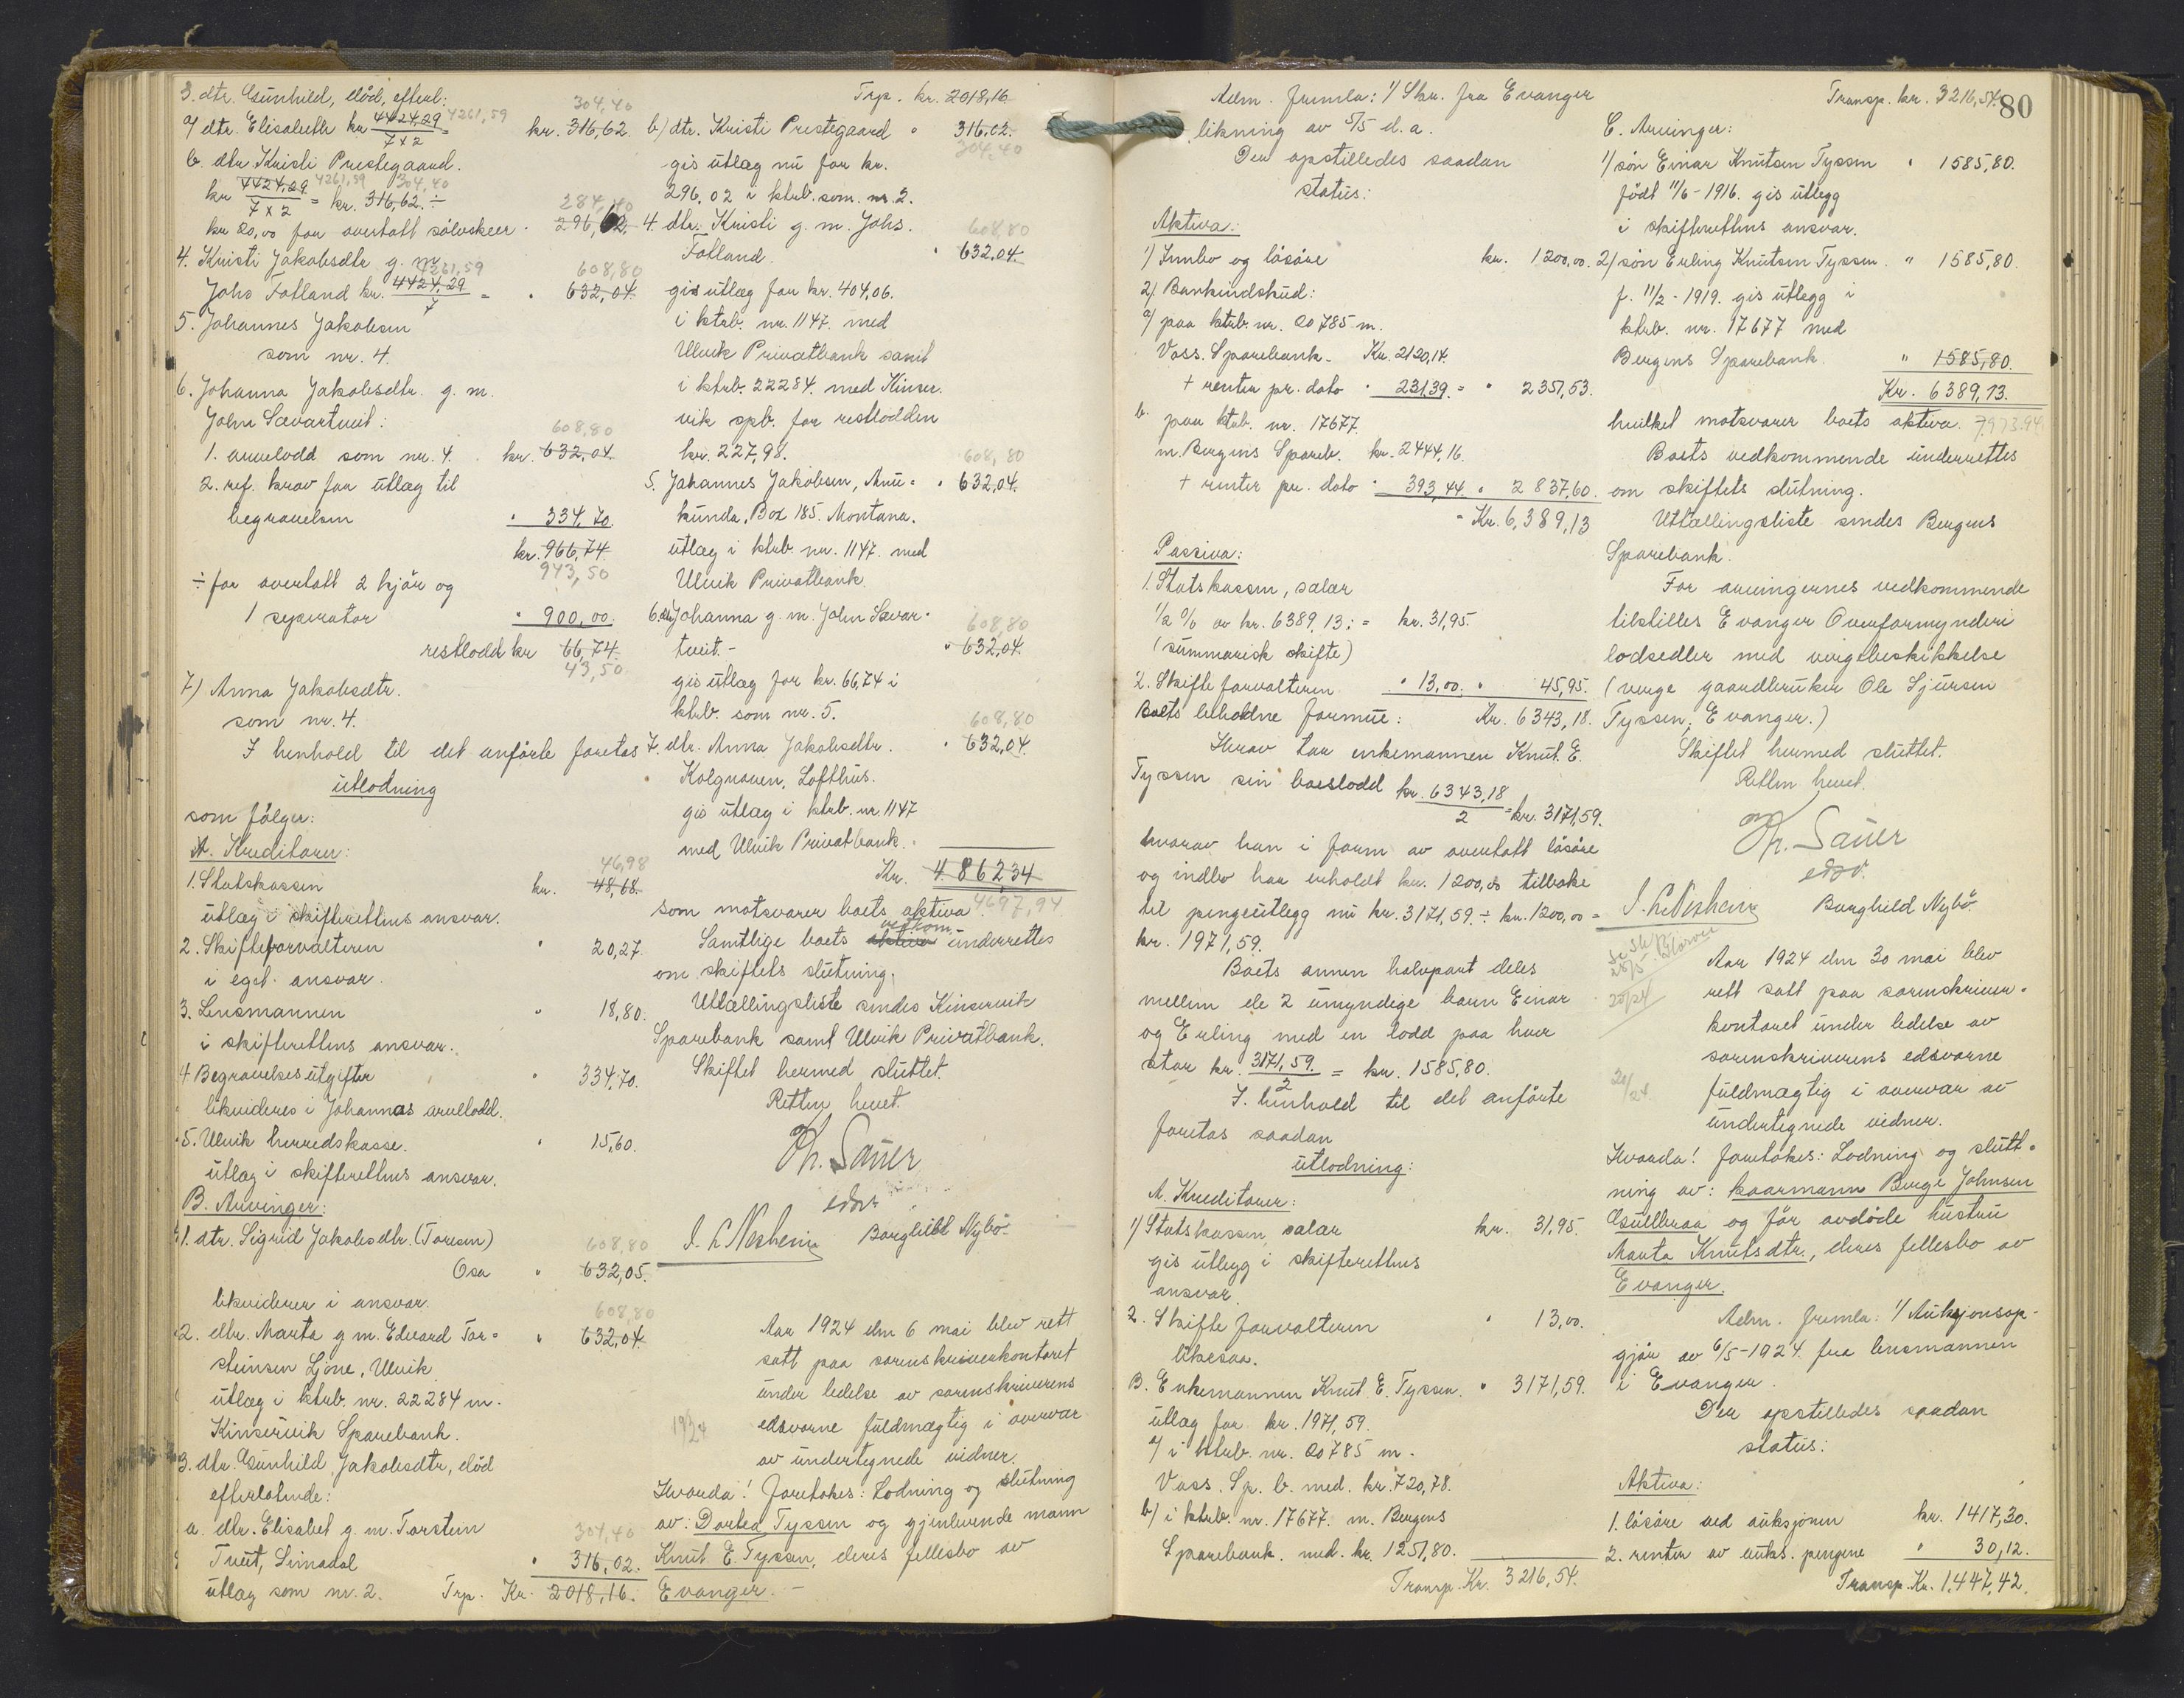 3. dtr. Gunhild, död, efterl:
a/ dtr. Elisabeth kr 4424,29 / 7x2 = 4261,59 304,40 kr. 316,62.
b. dtr Kristi Prestegaard.
kr 4424,29 / 7x2 4261,59 = kr. 316,62. ÷ 304,40
284,40
kr 20,00 for overtatt sölvskeer " 296,62.
4. Kristi Jakobsdtr g. m.
4261,59 608,80
Johs Fotland kr. 4424,29 / 7 = " 632,04.
5. Johannes Jakobsen
som nr. 4.
6. Johanna Jakobsdtr. g. m.
John Sævartveit:
608,80
1. arvelodd som nr. 4. kr. 632,04.
2. ref. krav for utlæg til
begravelsen " 334,70.
kr. 966,74.
943,50
÷ for overtatt 2 kjör og
1 separator " 900,00.
restlodd kr 66,74.
43,50
7) Anna Jakobsdtr.
som nr. 4.
I henhold til det anförte foretas
utlodning
som fölger:
A. Kreditorer:
46,98
1. Statskassen kr. 48,68.
utlæg i skifterettens ansvar.
2. Skifteforvalteren " 20,27.
i eget ansvar.
3. Lensmannen " 18,80.
i skifterettens ansvar.
4 Begravelsesutgifter " 334,70.
likvideres i Johannas arvelodd.
5. Ulvik herredskasse. " 15,60.
utlæg i skifterettens ansvar.
B. Arvinger:
1. dtr. Sigrid Jakobsdtr. (Toresen) 608,80
Osa " 632,05.
likviderer i ansvar.
608,80
2. dtr. Marta g m. Edvard Tor= " 632,04.
steinsen Ljone, Ulvik
utlæg i ktrb. nr. 22284 m.
Kinservik Sparebank.
3. dtr. Gunhild Jakobsdtr, död
efterlatende:
a. dtr. Elisabet g. m. Torstein 304,40
Tveit, Simadal " 316,02.
utlæg som nr. 2. Trp. Kr. 2018,16.
Trp. kr. 2018,16
b/ dtr. Kristi Prestegaard " 316,02.
304,40
gis utlæg nu for kr.
296,02 i ktrb. som nr. 2.
4. dtr. Kristi g. m. Johs. 608,80
Fotland. " 632,04.
gis utlæg for kr. 404,06.
i ktrb. nr. 1147. med
Ulvik Privatbank samt
i ktrb. 22284. med Kinser.
vik spb. for restlodden
kr. 227,98.
608,80
5. Johannes Jakobsen, Ana= " 632,04.
kunda, Box 185. Montana.
utlæg i ktrb. nr. 1147. med
Ulvik Privatbank.
6. dtr Johanna g. m. John Sævar= 608,80
tveit.- " 632,04.
gis utlæg for kr. 66,74 i
ktrb. som nr. 5.
608,80
7. dtr. Anna Jakobsdtr. " 632,04.
Kolgraven, Lofthus.
gis utlæg i ktrb. nr. 1147
med Ulvik Privatbank.
Kr. 4 862,34
som motsvarer boets aktiva. 4697,94
Samtlige boets aktiva vedkom. underrettes
om skiftets slutning.
Uttællingsliste sendes Kinservik
Sparebank samt Ulvik Privatbank.
Skiftet hermed sluttet.
Retten hevet.
Th. Sauer
edsv.
J. L. Nesheim Borghild Nybö
Aar 1924 den 6 mai blev rett
satt paa sorenskriverkontoret
under ledelse av sorenskriverens
1924 edsvorne fuldmægtig i overvær
av undertegnede vidner.
Hvorda! Foretokes: Lodning og slutning
av: Dortea Tyssen og gjenlevende mann
Knut E. Tyssen, deres fellesbo av
Evanger. -
Adm. fremla: 1/ Skr. fra Evanger
likning av 5/5 d. a.
Der opstilledes saadan
status:
Aktiva:
1) Innbo og lösöre kr. 1200,00.
2). Bankindskud:
a) paa ktrb. nr. 20785 m.
Voss. Sparebank - Kr. 2120,14.
+ renter pr. dato " 231,39. = " 2351,53.
b. paa ktrb. nr. 17677.
m. Bergens Spareb. kr. 2444,16.
+ renter pr. dato " 393,44. " 2 837,60.
- Kr. 6,389,13
Passiva:
1. Statskassen, salær
1/2 % av kr. 6389,13: = kr. 31,95.
(summarisk skifte)
2. Skifteforvalteren " 13,00. " 45,95.
Boets beholdne formue: Kr. 6343,18.
Herav tar enkemannen Knut E.
Tyssen sin boeslodd kr. 6343,18 / 2 = kr. 3171,59.
hvorav han i form av overtatt lösöre
og indbo har erholdt kr. 1200,00 tilbake
til pengeutlegg nu kr. 3171,59. ÷ kr. 1200,00 =
kr. 1971,59.
Boets annen halvpart deles
mellem de 2 umyndige barn Einar
og Erling med en lodd paa hver
stor kr. 3171,59. / 2 = kr. 1585,80.
I henhold til det anförte
foretas saadan
utlodning:
A. Kreditorer:
1) Statskassen, salær kr. 31,95.
gis utlegg i skifterettens
ansvar.
2. Skifteforvalteren " 13,00.
likesaa.
B. Enkemannen Knut E. Tyssen. " 3171,59.
utlæg for kr. 1971,59.
a) i ktrb. nr. 20785 m.
Voss. Sp. b. med. kr. 720,78.
b) i ktrb. nr. 17677. m. Bergens
Sparebank. med. kr. 1251,80.
Transp. Kr. 3216,54.
Transp. kr. 3216,54. 80
C. Arvinger:
1) sön Einar Knutsen Tyssen " 1585,80.
födt 11/6 - 1916. gis utlegg
i skifterettens ansvar.
2) sön Erling Knutsen Tyssen. " 1585,80.
f. 11/2 - 1919. gis utlegg i
ktrb. nr. 17677 med
Bergens Sparebank. " 1585,80.
Kr. 6389,13.
hvilket motsvarer boets aktiva. 7.973.94
Boets vedkommende underrettes
om skiftets slutning.
Uttællingsliste sendes Bergens
Sparebank.
For arvingernes vedkommende
tilstilles Evanger Overformynderi
lodsedler med vergebeskikkelse
(verge gaardbruker Ole Sjursen
Tyssen, Evanger.)
Skiftet hermed sluttet.
Retten hevet.
Th. Sauer
edsv.
J. L. Nesheim Borghild Nybö
Aar 1924 den 30 mai blev
rett satt paa sorenskriver=
kontoret under ledelse av
sorenskriverens edsvorne
fuldmægtig i overvær av
undertegnede vidner.
Hvorda! Foretokes: Lodning og slutt=
ning av: kaarmann Börge Johnsen
Gullbraa og för avdöde hustru
Marta Knutsdtr., deres fellesbo av
Evanger.
Adm. fremla: 1/ Auksjonsop-
gjör av 6/5-1924. fra lensmannen
i Evanger.
Der opstilledes saadan
status:
Aktiva:
1. lösöre ved auksjonen kr. 1417,30.
2. renter av auks. pengene " 30,12.
Transp. Kr. 1.447,42.